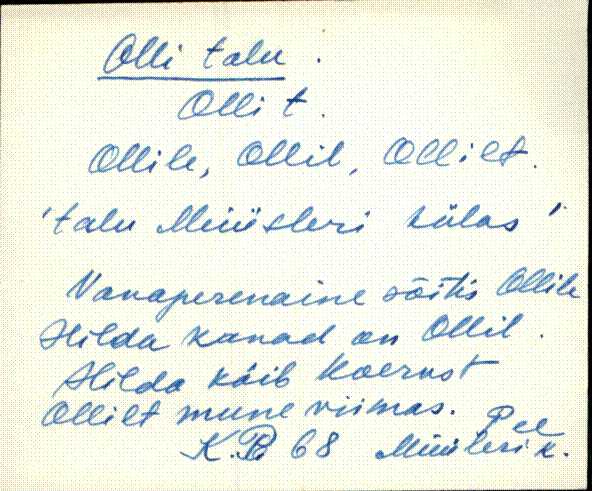 Olli talu.
Olli t.
Ollile, Ollil, Ollilt.
'talu Müüsleri külas'
Vanaperenaine sõitis Ollile
Hilda kanad on Ollil.
Hilda käib Koerust
Ollilt mune viimas.
Pee
K. 68 Müüsleri k.